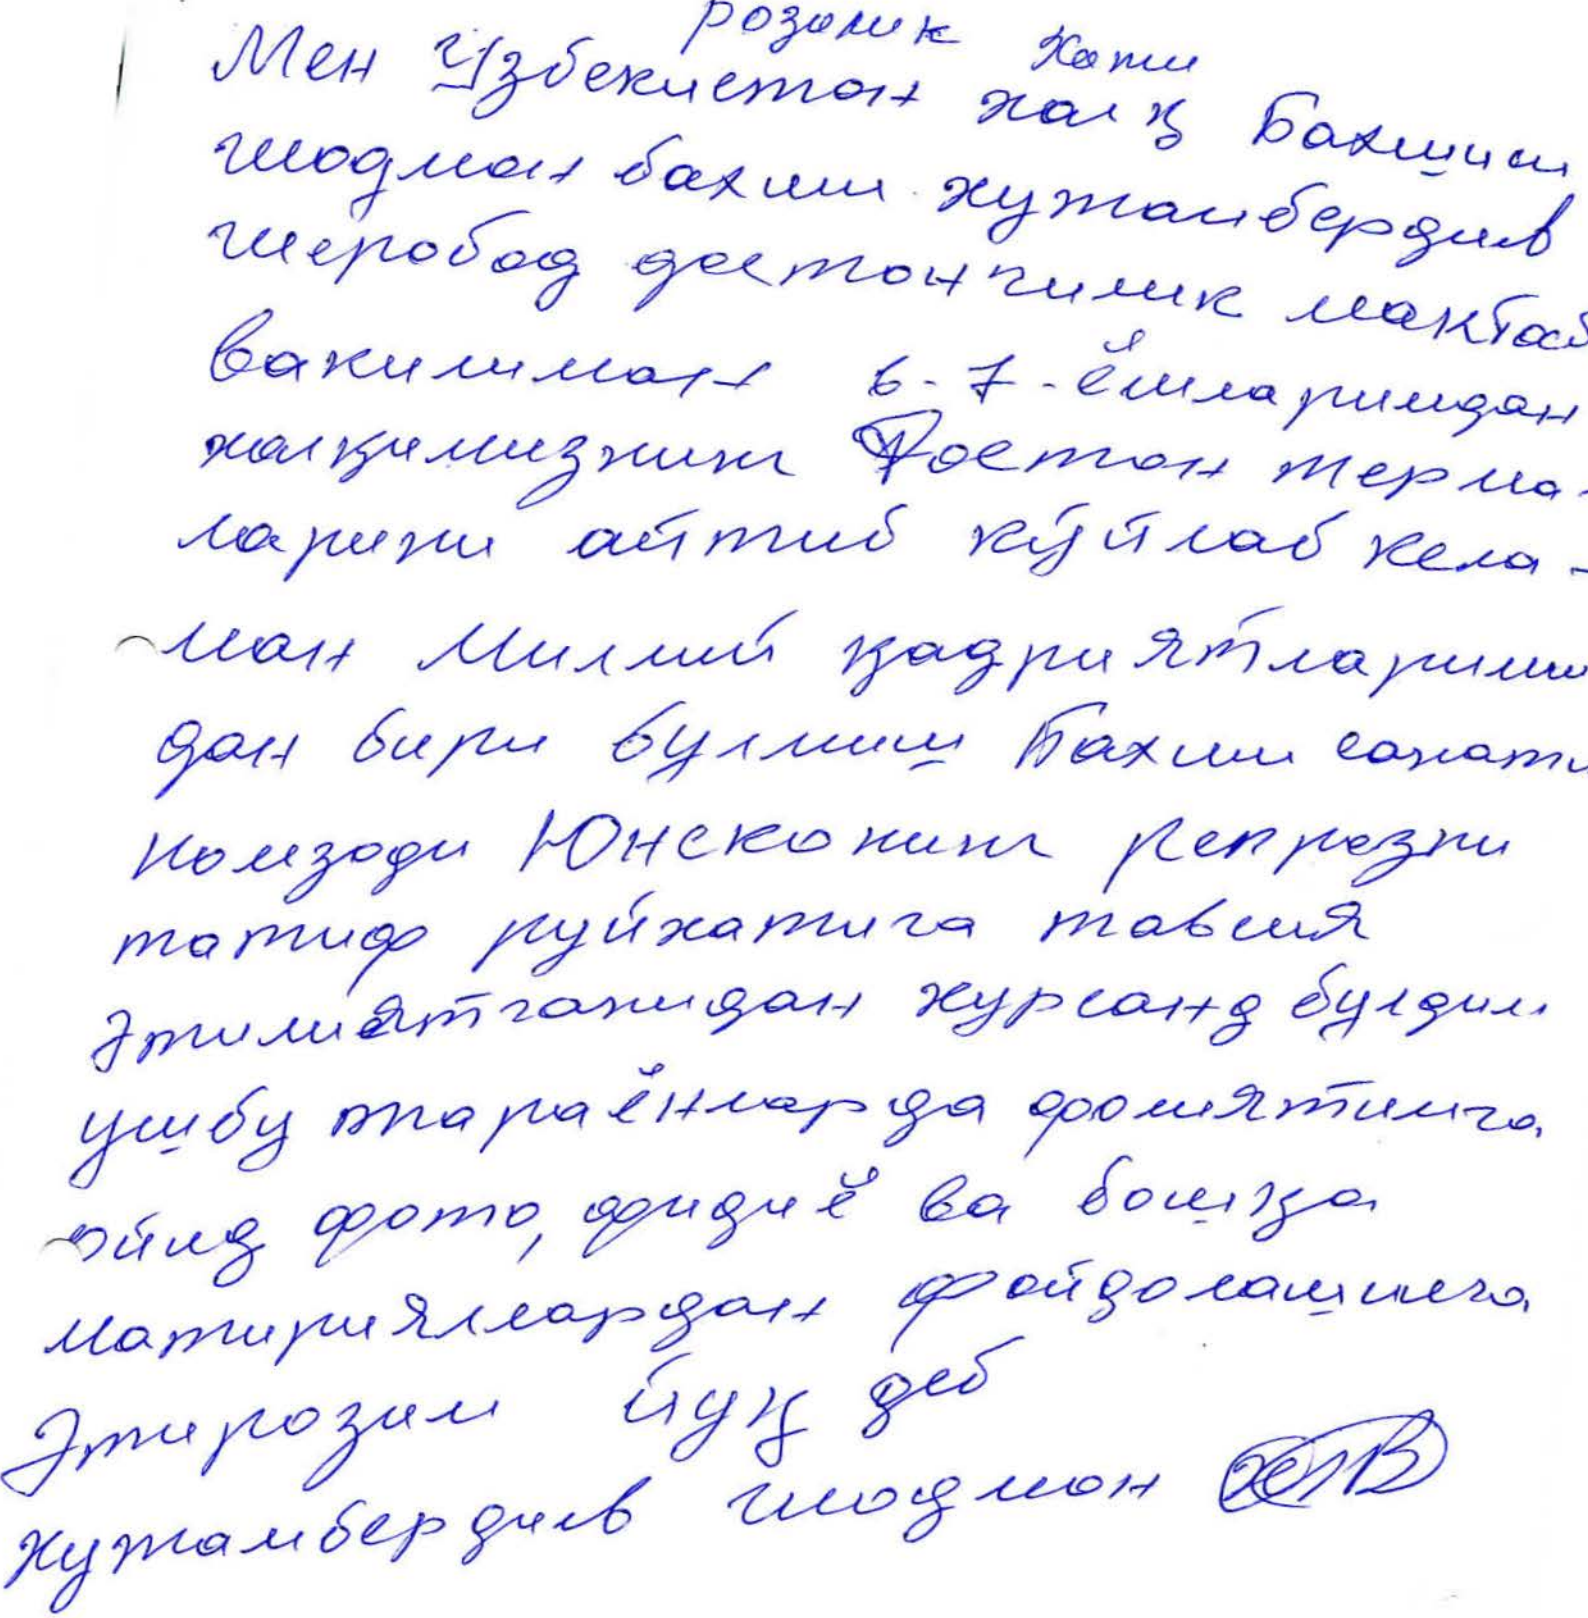 розолик хати
Мен Ўзбекистон халқ Бахшиси
шодмон бахши хужамбердиев
шеробод достончилик мактаб
вакилиман 6-7-ёшларимдан
халқимизнинг Достон терма-
ларини айтиб куйлаб кела-
ман Миллий қадриятларими
дан бири булмиш Бахши санати
Номзоди Юнесконинг Репрезни
татиф руйхатига тавсия
Этилиятганидан хурсанд булдим
ушбу жараёнларда фолиятимга
ойид фото, фидиё ва бошқа
материяллардан фойдоланишга
Этирозим йуқ деб
хужамбердиев шодмон